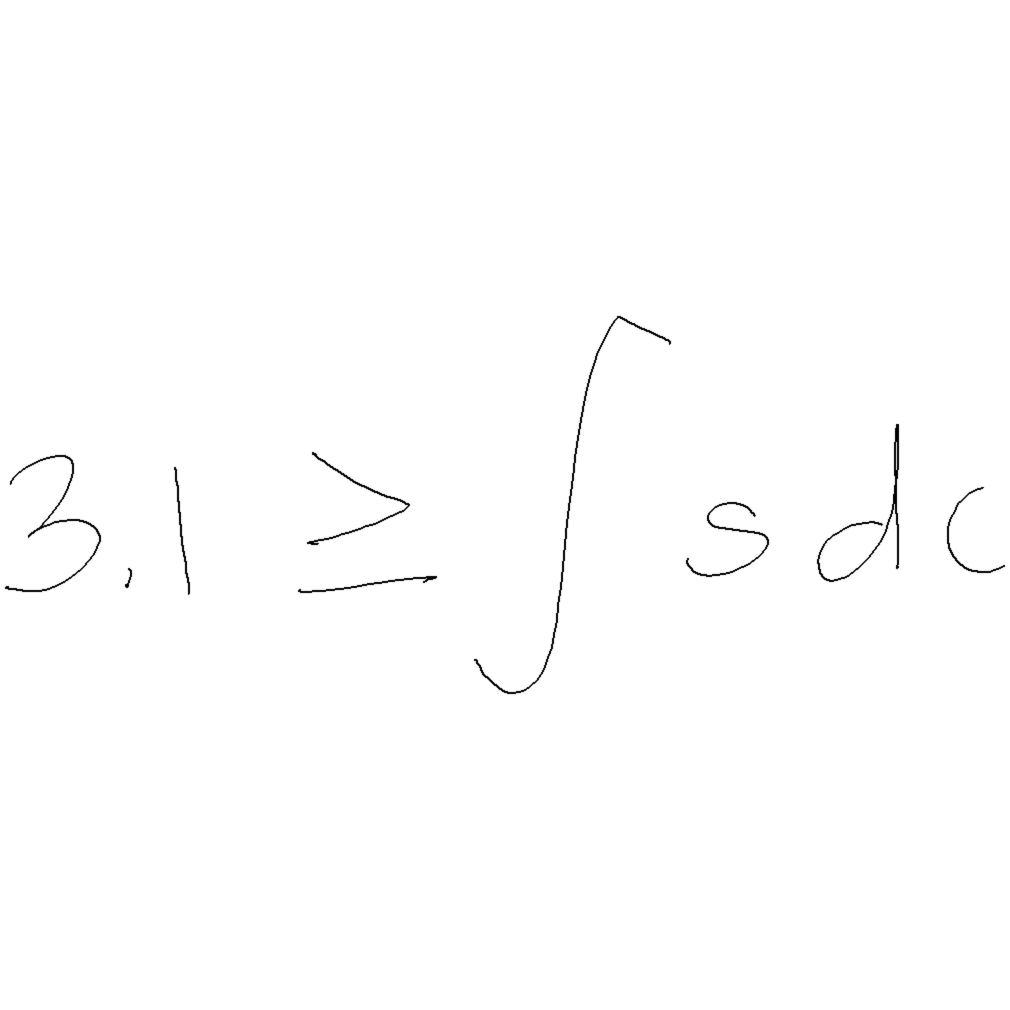 3.1 ≥ ∫ s dc